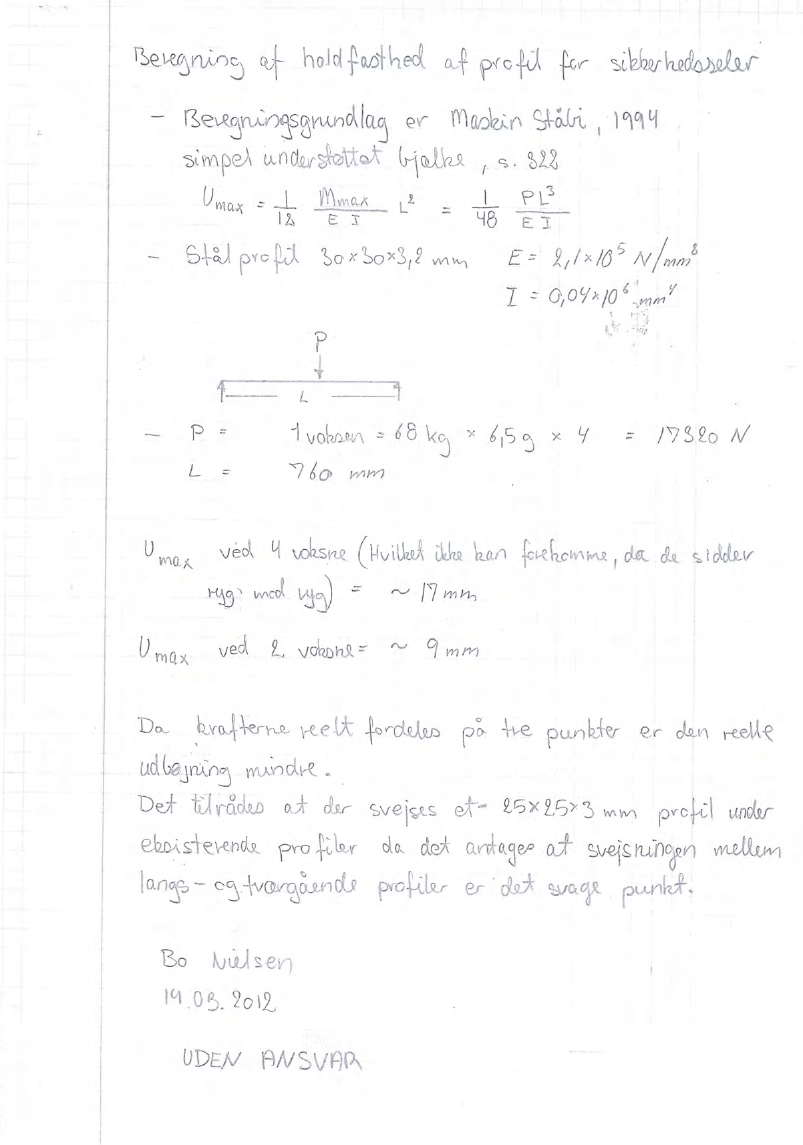 Beregning af holdfasthed af profil for sikkerhedsseler
- Beregningsgrundlag er Maskin Ståbi, 1994
simpel understøttet bjælke, s. 322
U max = 1/12 Mmax/EI L² = 1/48 PL³/EI
- Stål profil 30×30×3,2 mm E = 2,1×10⁵ N/mm²
I = 0,04×10⁶ mm⁴
P
L
- P = 1 voksen = 68 kg × 6,5 g × 4 = 17320 N
L = 760 mm
U max ved 4 voksne (Hvilket ikke kan forekomme, da de sidder
ryg mod ryg) = ~ 17 mm
U max ved 2 voksne = ~ 9 mm
Da krafterne reelt fordeles på tre punkter er den reelle
udbøjning mindre.
Det tilrådes at der svejses et 25×25×3 mm profil under
eksisterende profiler da det antages at svejsningen mellem
langs- og tværgående profiler er det svage punkt.
Bo Nielsen
19.03.2012
UDEN ANSVAR